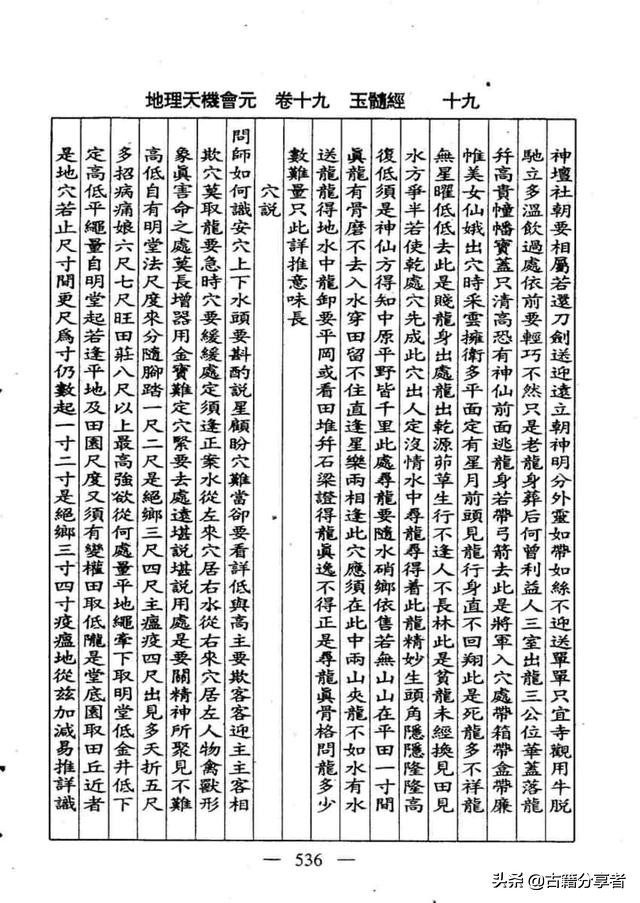 地理天機會元　卷十九　玉髓經　　十九
神壇社朝要相屬若還刀劍送迎遠立朝神明分外靈如帶如絲不迎送單單只宜寺觀用牛脫
馳立多溫飲過處依前要輕巧不然只是老龍身葬后何曾利益人三室出龍三公位華蓋落龍
幷高貴幢幡寶蓋只清高恐有神仙前面逃龍身若帶弓箭去此是將軍入穴處帶箱帶盒帶廉
帷美女仙娥出穴時采雲擁衛多平面定有星月前頭見龍行身直不回翔此是死龍多不祥龍
無星曜低低去此是賤龍身出處龍出乾源茆草生行不逢人不長林此是貧龍未經換見田見
水方爭半若使乾處穴先成此穴出人定沒情水中尋龍尋得着此龍精妙生頭角隱隱隆隆高
復低須是神仙方得知中原平野皆千里此處尋龍要隨水硝鄉依售若無山山在平田一寸間
眞龍有骨磨不去入水穿田留不住直逢星樂兩相逢此穴應須在此中兩山夾龍不如水有水
送龍龍得地水中龍卸要平岡或看田堆幷石梁證得龍眞逸不得正是尋龍眞骨格問龍多少
數難量只此詳推意味長
穴説
問師如何識安穴上下水頭要斟酌説星顧盼穴難當卻要看詳低與高主要欺客客迎主主客相
欺穴莫取龍要急時穴要緩緩處定須逢正案水從左來穴居右水從右來穴居左人物禽獸形
象眞害命之處莫長增器用金寶難定穴緊要去處遠堪説堪説用處是要關精神所聚見不難
高低自有明堂法尺度來分隨腳踏一尺二尺是絕鄉三尺四尺主瘟疫四尺出見多夭折五尺
多招病痛娘六尺七尺旺田莊八尺以上最高強欲從何處量平地繩牽下取明堂低金井低下
定高低平繩量自明堂起若逢平地及田園尺度又須有變權田取低隴是堂底園取田丘近者
是地穴若止尺寸間更尺爲寸仍數起一寸二寸是絕鄉三寸四寸疫瘟地從茲加減易推詳識
— 536 —
头条 @古籍分享者